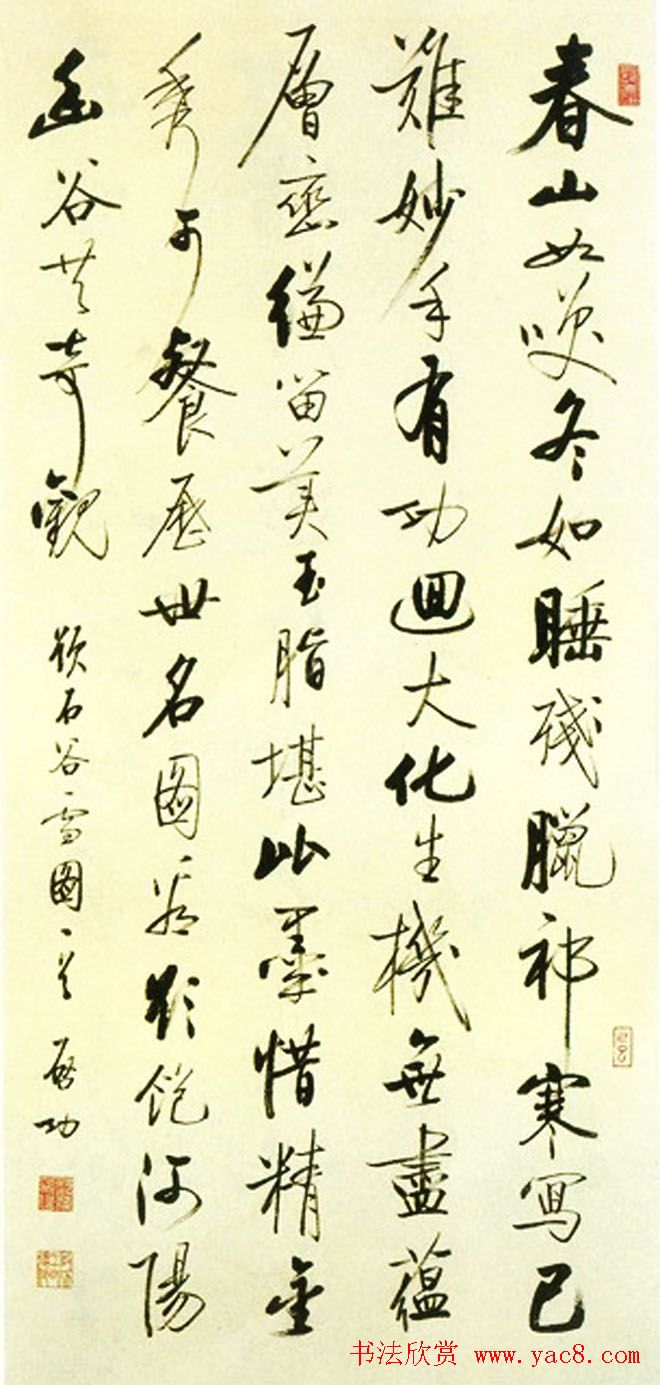 春山如咲冬如睡殘臘祁寒寫已
難妙手有功迴大化生機無盡蘊
層巒縑留美玉脂堪比墨惜精金
秀可餐歷世名圖看欲飽河陽
幽谷共奇觀
石谷雪圖一首 啟功
书法欣赏 www.yac8.com